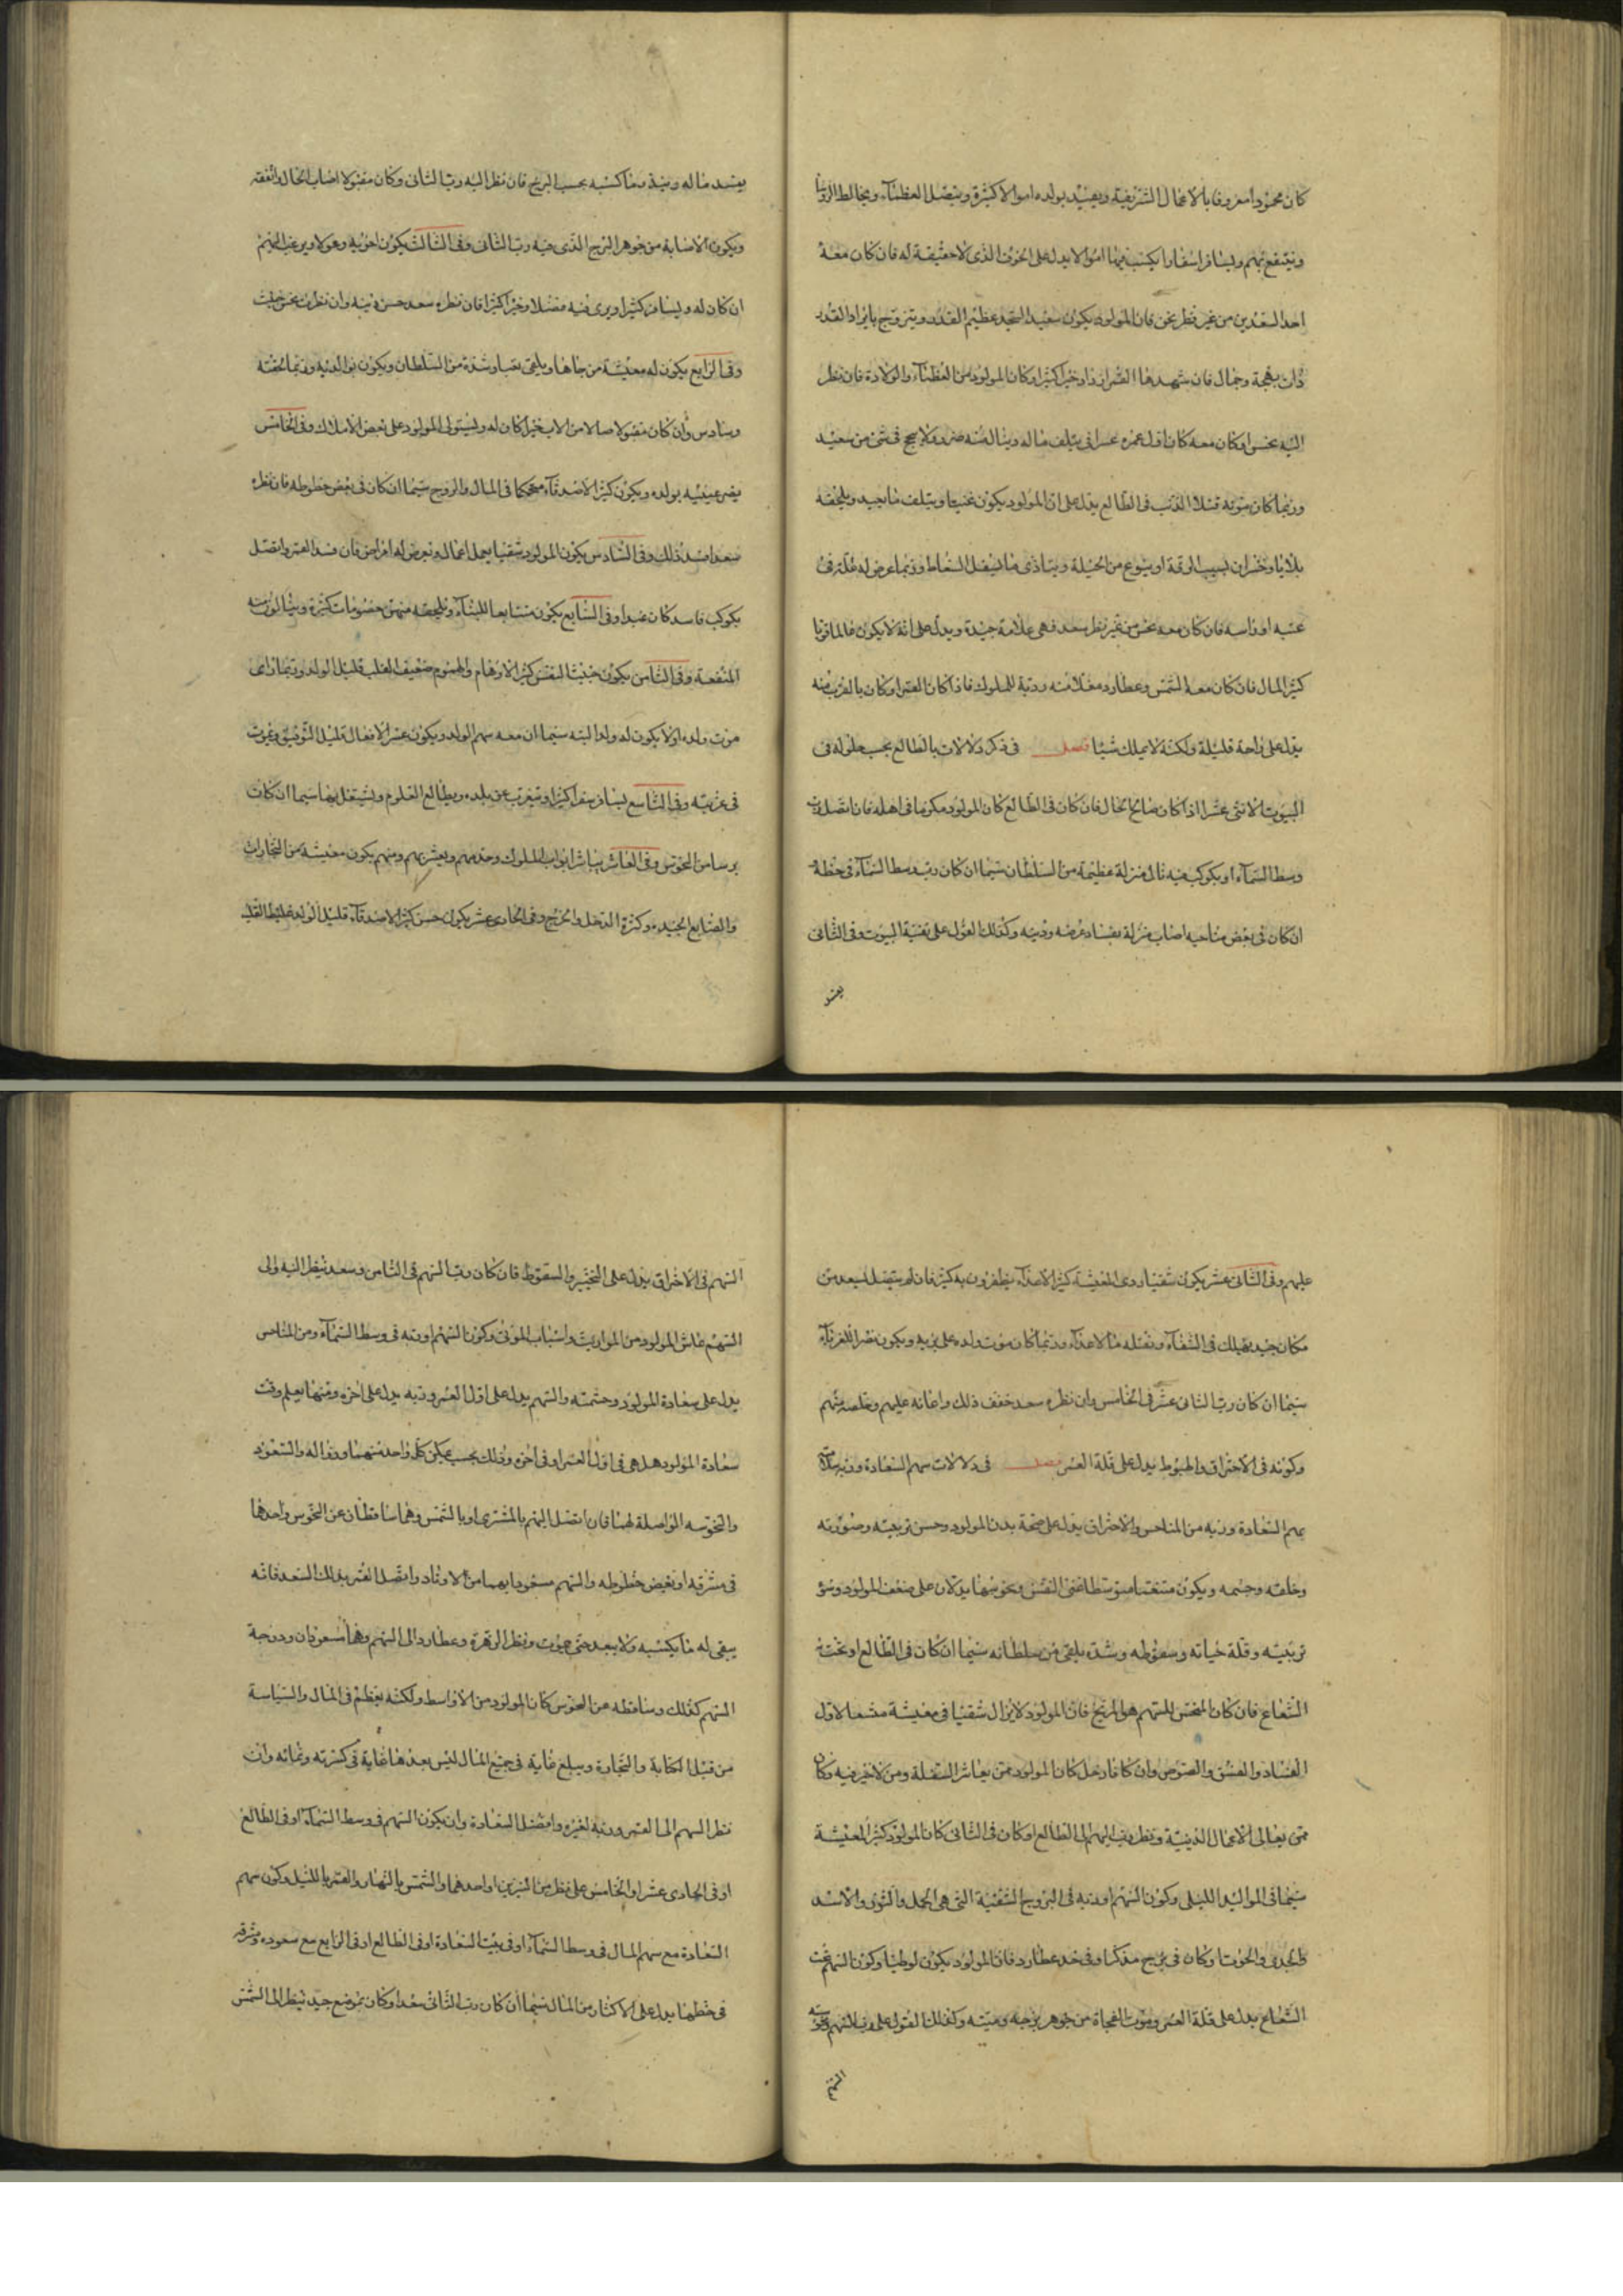 كان محمودا معروفا بالاعمال الشريفة ويصيب بولده اموالا كثيرة ويتصل بالعظماء ويخالط الرؤسا
وينتفع بهم ويسافر اسفارا يكتسب فيها اموالا يدل على الحزن الذى لا حقيقة له فان كان معه
احد السعدين من غير نظر نحس فان المولود يكون سعيد الجد عظيم القدر ويتزوج بابراد القدر
ذات بهجة وجمال فان شهدها القمر ازداد خيرا كثيرا وكان المولود من العظماء والولادة فان نظر
اليه نحس او كان معه كان اول عمره عسرا فى تلف ماله ويناله منه ضرر ولا ينجح فى شئ من سعيه
وربما كان موته قتلا الذنب فى الطالع يدل على ان المولود يكون غنيا ويتلف ما بيده ويلحقه
بلايا وخسران بسبب الرقة او بنوع من الحيلة ويتاذى مما يفعل السفاط وربما عرض له علة فى
عينيه او راسه فان كان معه نحس من غير نظر سعد فهى علامة جيدة ويدل على انه لا يكون ظالما قويا
كثير المال فان كان معه الشمس وعطارد معلا منه ورتبة للملوك فاذا كان القمر او كان بالقرب منه
يدل على راحة قليلة ولكنه لا يملك شيئا فصل فى ذكر دلالات رب الطالع بحسب حلوله فى
البيوت الاثنى عشر اذا كان صالح الحال فان كان فى الطالع كان المولود مكرما فى اهله فان اتصل برب
وسط السماء او بكوكب فيه نال منزلة عظيمة من السلطان سيما ان كان رب وسط السماء فى حظه و
ان كان فى بعض مناحسه اصاب منزلة بفساد عرضه ودينه وكذلك القول على بقية البيوت وفى الثانى
يفسد
يفسد ماله وينفذ ما كسبه بحسب البرج فان نظر اليه رب الثانى وكان مقبولا اصاب الحال وانفقه
ويكون الاصابة من جوهر البرج الذى فيه رب الثانى وفى الثالث يكون اخوته وهو لا ويرغب اليهم
ان كان له ويسافر كثيرا ويرى فيه فضلا وخيرا كثيرا فان نظره سعد حسن دينه وان نظره نحس خبث
وفى الرابع يكون له معيشة من جاهها ويلقى نصبا وشدة من السلطان ويكون بوالديه وربما لحقته
وساوس وان كان مقبولا صالا من الاب خيرا كان له ويستولى المولود على بعض الاملاك وفى الخامس
يقر عينيه بولده ويكون كثير الاصدقاء محكما فى المال والزوج سيما ان كان فى بعض حظوظه فان نظره
سعد اضد ذلك وفى السادس يكون المولود شقيا يعمل اعمال ويعرض له امراض فان فسد القمر واتصل
بكوكب فاسد كان عبدا وفى السابع يكون متتابعا للنساء ويلحقه منهن خصومات كثيرة وينالون منه
المنفعة وفى الثامن يكون خبيث النفس كثير الاوهام والهموم ضعيف القلب قليل الولد وربما راى
موت ولده اولا يكون له ولد البته سيما ان معه سهم الولد ويكون عسر الافعال قليل التوفيق ويموت
فى غربته وفى التاسع يسافر سفرا كثيرا ويتغرب عن بلده ويطالع العلوم ويشتغل بها سيما ان كان
بريئا من النحوس وفى العاشر يباشر ابواب الملوك وخدمهم ويعشرهم ومنهم يكون معيشته من التجارات
والصنايع الجيده وكثرة الدخل والخرج وفى الحادى عشر يكون حسن كثير الاصدقاء قليل الولد غليظ القلب
عليهم وفى الثانى عشر يكون شقيا ردى المعيشة كثير الاعداء يظفرون به كثيرا فان لم يتصل بسعد من
مكان جيد يهلك فى الشقاء وتقتله ما الاعداء وربما كان موت ولده على يديه ويكون نصرا للغرباء
سيما ان كان رب الثانى عشر فى الخامس وان نظره سعد خفف ذلك واعانه عليهم وخلصه منهم
وكونه فى الاحتراق والهبوط يدل على قلة العمر فصل فى دلالات سهم السعادة وربه سلامة
سهم السعادة وربه من المناحس والاحتراق يدل على صحة بدن المولود وحسن تربيته وصورته
وخلقه وجسمه ويكون متنعما متوسطا غنى النفس ونحوسها يدلان على ضعف المولود وسؤ
تربيته وقلة حياته وسقوطه وشدة يلقى من سلطانه سيما ان كان فى الطالع او تحت
الشعاع فان كان المنحس للسهم هو المريخ فان المولود لا يزال شقيا فى معيشة مشعا لاول
الفساد والفسق واللصوص وان كان زحل كان المولود ممن يعاشر السفلة ومن لا خير فيه وكان
ممن يعالى الاعمال الدنيئة ونظر رب السهم الى الطالع او كان فى الثانى كان المولود كثير المعيشة
سيما فى المواليد الليلى وكون السهم او ربه فى البروج الشقية التى هى الحمل والثور والاسد
والجدى والحوت او كان فى برج مذكر او فى حد عطارد فان المولود يكون لوطيا وكون السهم تحت
الشعاع يدل على قلة العمر وموت الفجاة من جوهر برجه وميته وكذلك القول على رب السهم وكونه
السهم
السهم فى الاحتراق يدل على التحيير والسقوط فان كان رب السهم فى الثامن وسعد ينظر اليه والى
السهم عاش المولود من المواريث واسباب الموتى وكون السهم او ربه فى وسط السماء ومن المناحس
يدل على سعادة المولود وحشمته والسهم يدل على اول العمر وربه يدل على اخره ومنها يعلم وقت
سعادة المولود هل هى فى اول العمر او فى اخره وذلك بحسب تمكن كل واحد منهما وزواله والسعود
والنحوسه الواصلة لهما فان اتصل السهم بالمشترى او بالشمس وهما ساقطان عن النحوس واحدها
فى مشرقه او بعض حظوظه والسهم مسعودا بهما من الاوتاد واتصل القمر بذلك السعد فانه
يبقى له ما يكسبه ولا يبعد حتى يموت ونظر الزهرة وعطارد الى السهم وهما مسعودان ودرجة
السهم كذلك وساقطه عن النحوس كان المولود من الاواسط ولكنه يعظم فى المال والسياسة
من قبل الكتابة والتجارة ويبلغ غاية فى جمع المال ليس بعدها غاية فى كثرته ونمائه وان
نظر السهم الى القمر وربه لغيره وافضل السعادة وان يكون السهم فى وسط السماء او فى الطالع
او فى الحادى عشر او الخامس على نظر من النيرين او احدهما والشمس بالنهار والقمر بالليل وكون سهم
السعادة مع سهم المال فى وسط السماء او فى بيت السعادة او فى الطالع او فى الرابع مع سعوده وشرفه
فى حظها يدل على الاكثار من المال سيما ان كان رب الثانى سعدا وكان بموضع جيد ينظر الى الشمس